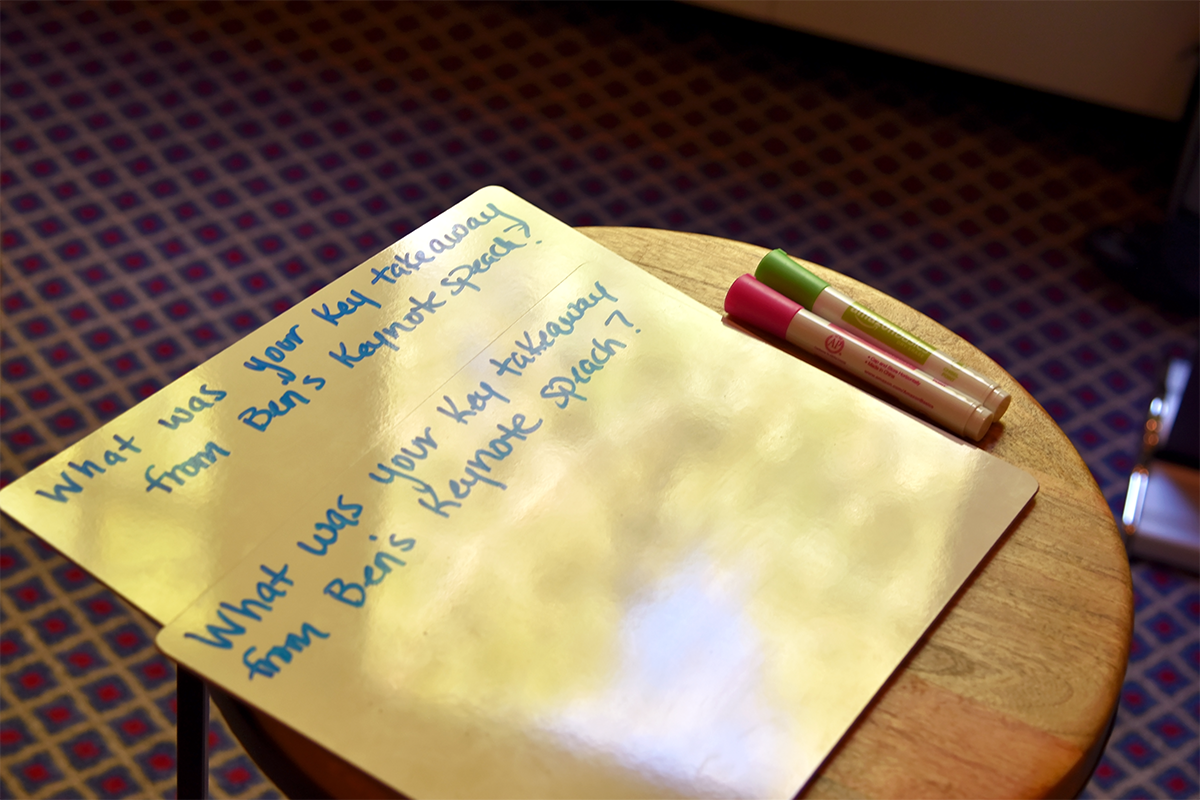 What was your key takeaway
from Ben's Keynote speach?
What was your key takeaway
from Ben's Keynote speach?